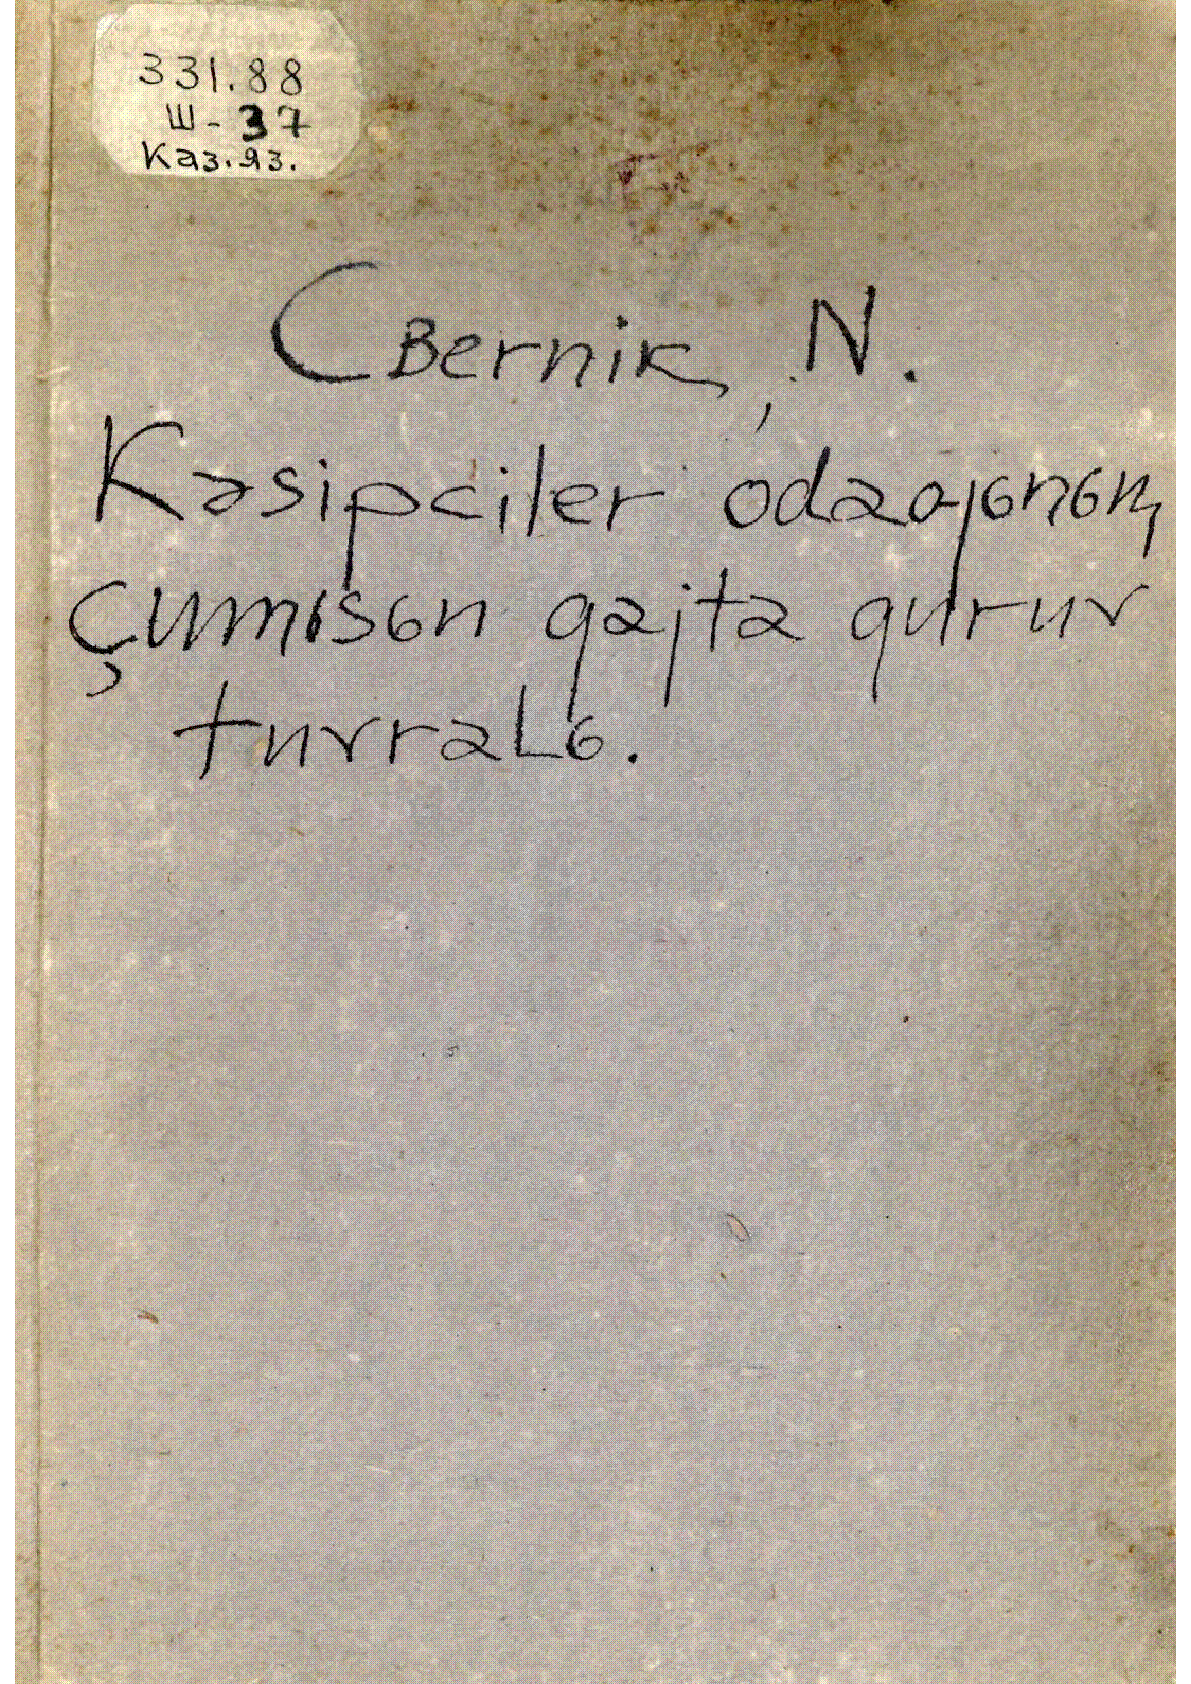 331.88
Ш-37
Каз.яз.
Cвernik, N.
Kəsipciler odaaqьnьꞑ
çumьsьn qajta quruv
tuvralь.